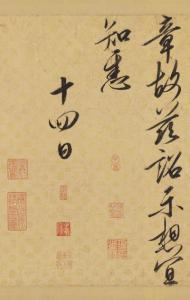 章故茲詔示想宜
知悉
十四日